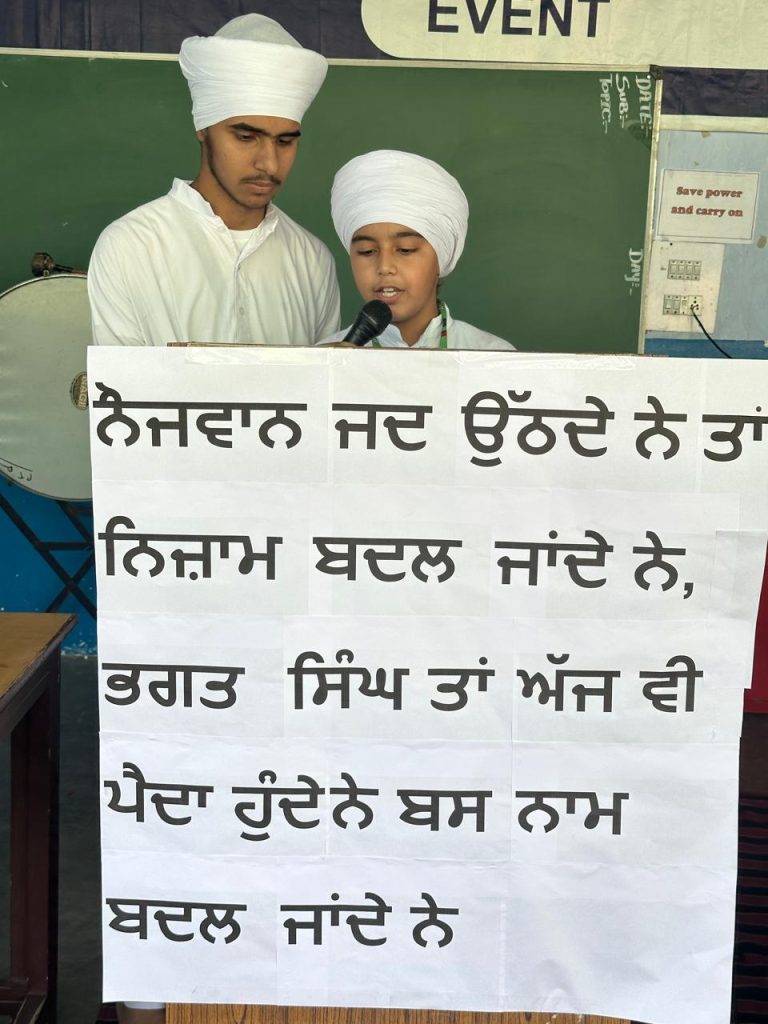 EVENT
DATE:-
SUB:-
TOPIC:-
DAY:-
Save power
and carry on
ਨੌਜਵਾਨ ਜਦ ਉੱਠਦੇ ਨੇ ਤਾਂ
ਨਿਜ਼ਾਮ ਬਦਲ ਜਾਂਦੇ ਨੇ,
ਭਗਤ ਸਿੰਘ ਤਾਂ ਅੱਜ ਵੀ
ਪੈਦਾ ਹੁੰਦੇਨੇ ਬਸ ਨਾਮ
ਬਦਲ ਜਾਂਦੇ ਨੇ